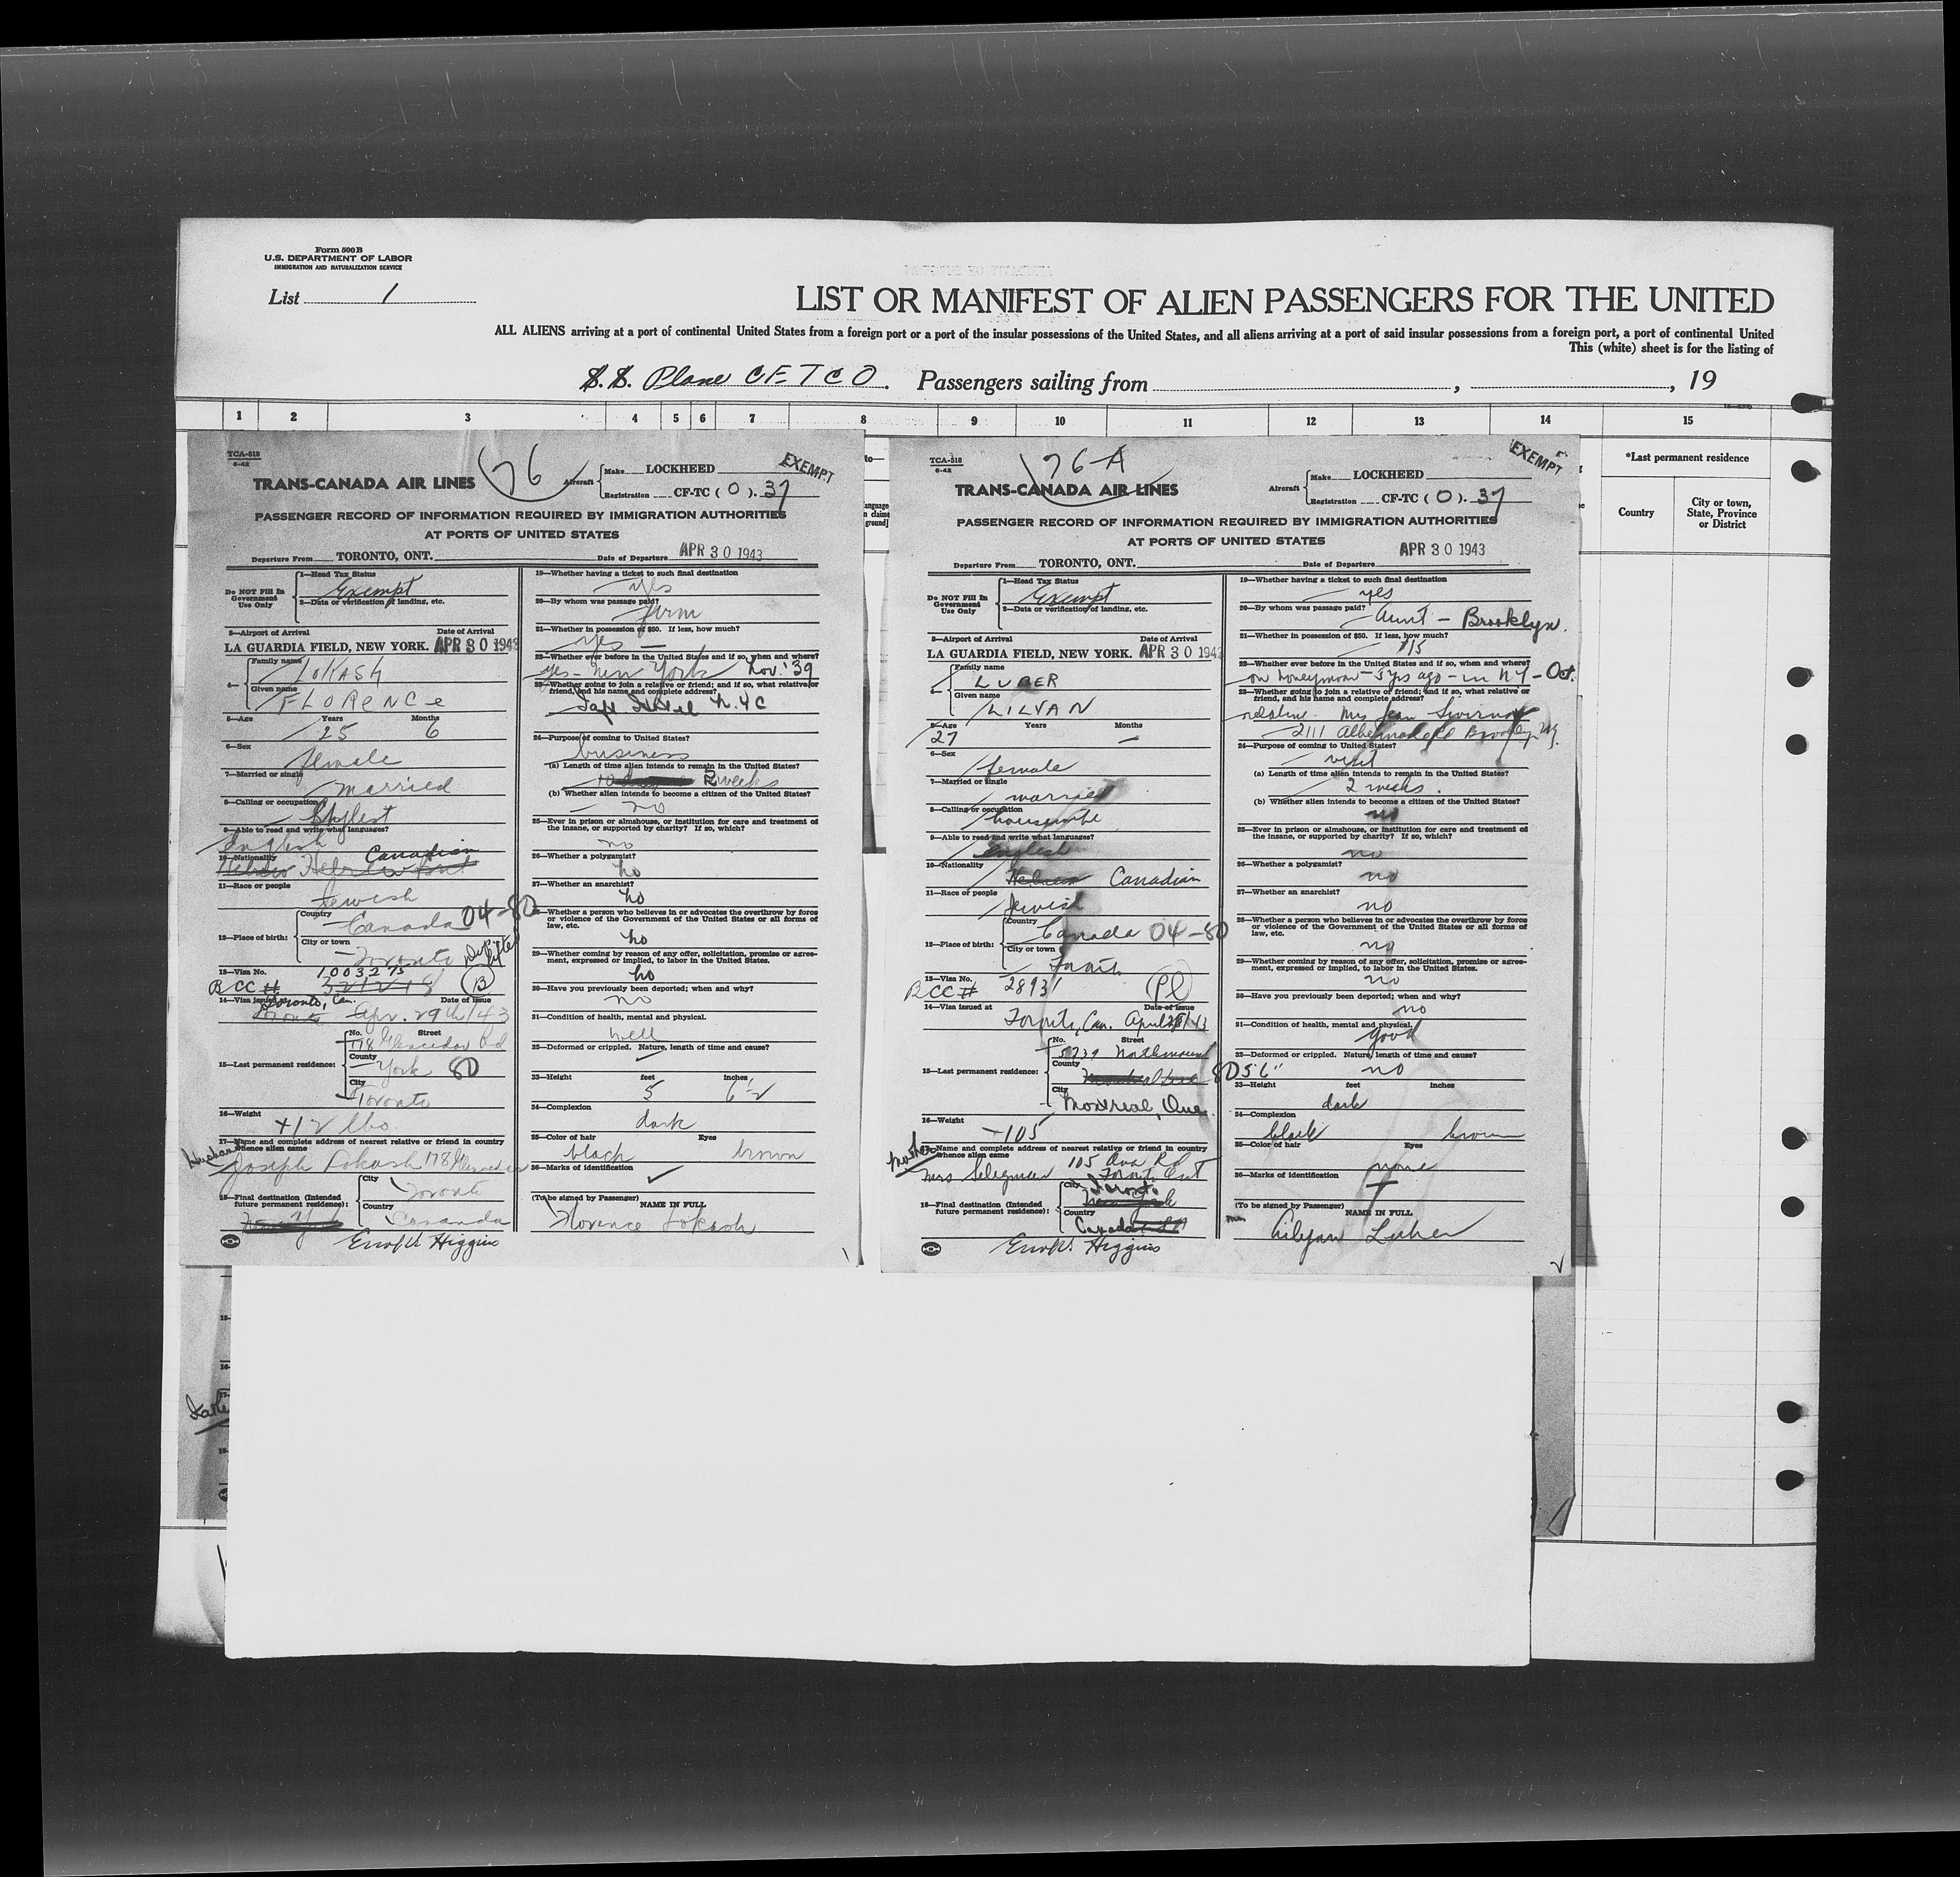 Form 500 B
U.S. DEPARTMENT OF LABOR
IMMIGRATION AND NATURALIZATION SERVICE
List 1
LIST OR MANIFEST OF ALIEN PASSENGERS FOR THE UNITED
ALL ALIENS arriving at a port of continental United States from a foreign port or a port of the insular possessions of the United States, and all aliens arriving at a port of said insular possessions from a foreign port, a port of continental United
This (white) sheet is for the listing of
S.S. Plane CFTCO. Passengers sailing from , , 19
1 2 3 4 5 6 7 8 9 10 11 12 13 14 15
*Last permanent residence
Country
City or town, State, Province or District
TCA-318
6-42
76
EXEMPT
TRANS-CANADA AIR LINES
Aircraft Make LOCKHEED
Registration CF-TC ( O ). 37
PASSENGER RECORD OF INFORMATION REQUIRED BY IMMIGRATION AUTHORITIES
AT PORTS OF UNITED STATES
Departure From TORONTO, ONT. Date of Departure APR 30 1943
Do NOT Fill In Government Use Only
1—Head Tax Status
Exempt
2—Data or verification of landing, etc.
3—Airport of Arrival Date of Arrival
LA GUARDIA FIELD, NEW YORK. APR 30 1943
4— Family name
LOKASH
Given name
FLORENCE
5—Age Years Months
25 6
6—Sex
female
7—Married or single
married
8—Calling or occupation
Stylest
9—Able to read and write what languages?
English
10—Nationality
Canadian
Hebrew
11—Race or people
Jewish
12—Place of birth: Country
Canada 04-80
City or town
Toronto
13—Visa No. 1003275
BCC # 321218 B
14—Visa issued at Toronto, Can. Date of Issue
Toronto Apr. 29th/43
15—Last permanent residence: No. Street
178 Glencedar Rd
County
York 80
City
Toronto
16—Weight
112 lbs
17—Name and complete address of nearest relative or friend in country whence alien came
Husband
Joseph Lokash 178 Glencedar
18—Final destination (Intended future permanent residence): City
Toronto
Country
Canada
Higgins
19—Whether having a ticket to such final destination
yes
20—By whom was passage paid?
firm
21—Whether in possession of $50. If less, how much?
yes —
22—Whether ever before in the United States and if so, when and where?
yes - New York Nov. '39
23—Whether going to join a relative or friend; and if so, what relative or friend, and his name and complete address?
Taft Hotel N.Y.C
24—Purpose of coming to United States?
business
(a) Length of time alien intends to remain in the United States?
2 weeks
(b) Whether alien intends to become a citizen of the United States?
no
25—Ever in prison or almshouse, or institution for care and treatment of the insane, or supported by charity? If so, which?
no
26—Whether a polygamist?
no
27—Whether an anarchist?
no
28—Whether a person who believes in or advocates the overthrow by force or violence of the Government of the United States or all forms of law, etc.
no
29—Whether coming by reason of any offer, solicitation, promise or agreement, expressed or implied, to labor in the United States.
no
30—Have you previously been deported; when and why?
no
31—Condition of health, mental and physical.
well
32—Deformed or crippled. Nature, length of time and cause?
33—Height feet inches
5 6½
34—Complexion
dark
35—Color of hair Eyes
black brown
36—Marks of identification
(To be signed by Passenger) NAME IN FULL
Florence Lokash
TCA-318
6-42
76-A
EXEMPT
TRANS-CANADA AIR LINES
Aircraft Make LOCKHEED
Registration CF-TC ( O ). 37
PASSENGER RECORD OF INFORMATION REQUIRED BY IMMIGRATION AUTHORITIES
AT PORTS OF UNITED STATES
APR 30 1943
Departure From TORONTO, ONT. Date of Departure
Do NOT Fill In Government Use Only
1—Head Tax Status
Exempt
2—Data or verification of landing, etc.
3—Airport of Arrival Date of Arrival
LA GUARDIA FIELD, NEW YORK. APR 30 1943
4— Family name
LUBER
Given name
LILYAN
5—Age Years Months
27 —
6—Sex
female
7—Married or single
married
8—Calling or occupation
housewife
9—Able to read and write what languages?
English
10—Nationality
Hebrew Canadian
11—Race or people
Jewish
12—Place of birth: Country
Canada 04-80
City or town
Toronto
13—Visa No.
BCC # 2893 Pl
14—Visa issued at Date of Issue
Toronto, Can. April
15—Last permanent residence: No. Street
5239 Northmount
County
80
City
Montreal, Que.
16—Weight
105
17—Name and complete address of nearest relative or friend in country whence alien came
mother
Mrs Seligman 105 Ava Rd
Toronto Ont
18—Final destination (Intended future permanent residence): City
Toronto
New York
Country
Canada
Higgins
19—Whether having a ticket to such final destination
yes
20—By whom was passage paid?
Aunt - Brooklyn.
21—Whether in possession of $50. If less, how much?
22—Whether ever before in the United States and if so, when and where?
on honeymoon - 5 yrs ago - in NY - Oct.
23—Whether going to join a relative or friend; and if so, what relative or friend, and his name and complete address?
relative - Mrs Jean
2111
24—Purpose of coming to United States?
visit
(a) Length of time alien intends to remain in the United States?
2 weeks.
(b) Whether alien intends to become a citizen of the United States?
no
25—Ever in prison or almshouse, or institution for care and treatment of the insane, or supported by charity? If so, which?
no
26—Whether a polygamist?
no
27—Whether an anarchist?
no
28—Whether a person who believes in or advocates the overthrow by force or violence of the Government of the United States or all forms of law, etc.
no
29—Whether coming by reason of any offer, solicitation, promise or agreement, expressed or implied, to labor in the United States.
no
30—Have you previously been deported; when and why?
no
31—Condition of health, mental and physical.
good
32—Deformed or crippled. Nature, length of time and cause?
5'6" no
33—Height feet inches
dark
34—Complexion
black brown
35—Color of hair Eyes
none
36—Marks of identification
(To be signed by Passenger) NAME IN FULL
Lilyan Luber